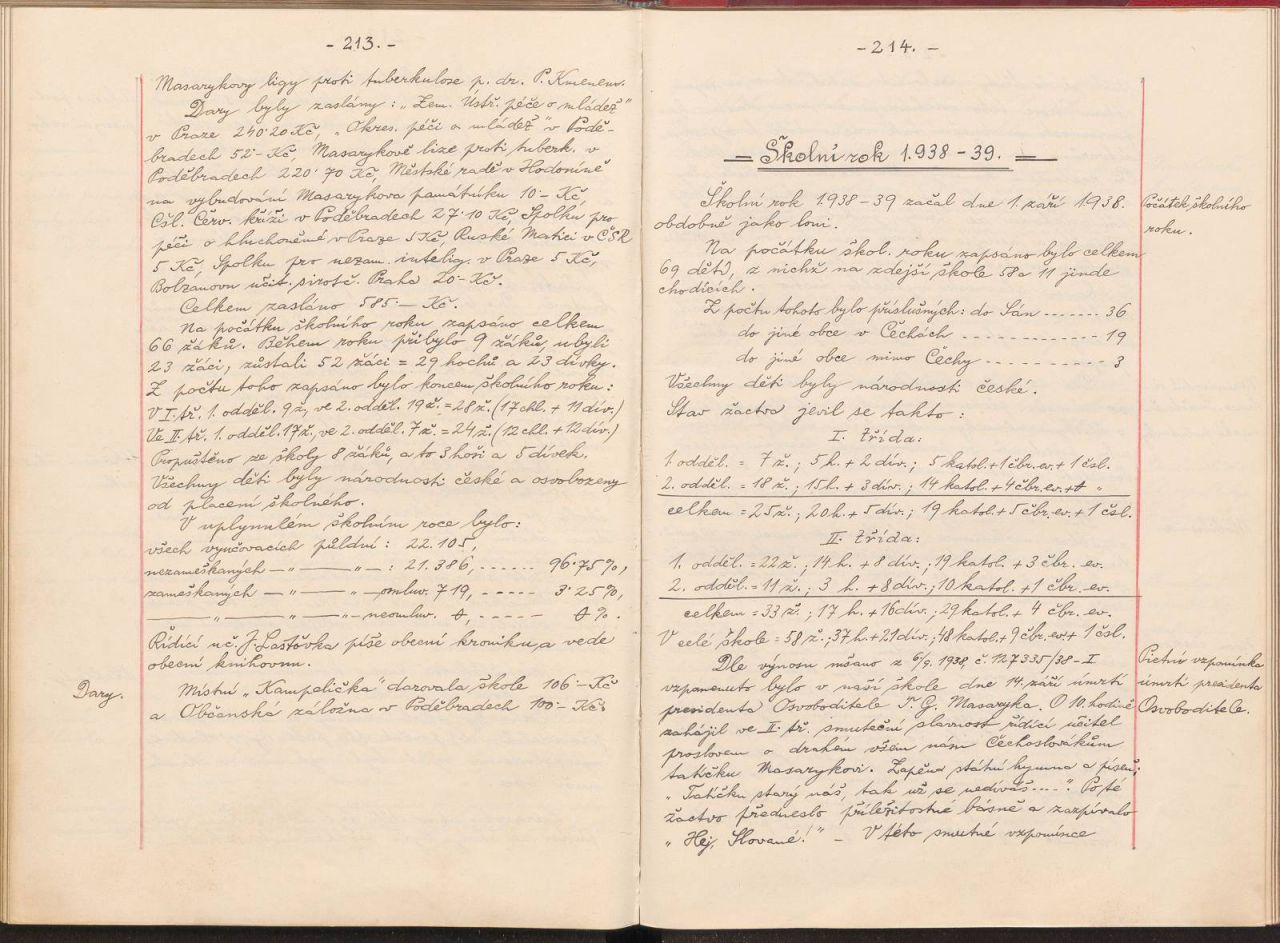 - 213. -
Masarykovy ligy proti tuberkulose p. dr. P. Kmenem.
Dary byly zaslány: „Zem. Ústř. péče o mládež"
v Praze 240·20 Kč, „Okres. péči o mládež" v Podě-
bradech 52·- Kč, Masarykově lize proti tuberk. v
Poděbradech 220·70 Kč, Městské radě v Hodoníně
na vybudování Masarykova památníku 10·- Kč,
Čsl. Červ. kříži v Poděbradech 27·10 Kč, Spolku pro
péči o hluchoněmé v Praze 5 Kč, Ruské Matici v ČSR
5 Kč, Spolku pro nezam. intelig. v Praze 5 Kč,
Bolzanovu učit. sirotč. Praha 20·- Kč.
Celkem zasláno 585·— Kč.
Na počátku školního roku zapsáno celkem
66 žáků. Během roku přibylo 9 žáků, ubyli
23 žáci, zůstali 52 žáci = 29 hochů a 23 dívky.
Z počtu toho zapsáno bylo koncem školního roku:
V I. tř. 1. odděl. 9 ž., ve 2. odděl. 19 ž. = 28 ž. (17 chl. + 11 dív.)
Ve II. tř. 1. odděl. 17 ž., ve 2. odděl. 7 ž. = 24 ž. (12 chl. + 12 dív.)
Propuštěno ze školy 8 žáků, a to 3 hoši a 5 dívek.
Všechny děti byly národnosti české a osvobozeny
od placení školného.
V uplynulém školním roce bylo:
všech vyučovacích půldní: 22.105,
nezameškaných — „ — „ — : 21.386, ------ 96·75 %,
zameškaných — „ — „ — omluv. 719, ----- 3·25 %,
— „ — — „ — „ — neomluv. 0, ----- 0 %.
Řídící uč. J. Lašťovka píše obecní kroniku a vede
obecní knihovnu.
Dary.
Místní „Kampelička" darovala škole 106·- Kč
a Občanská záložna v Poděbradech 100·- Kč.
- 214. -
Školní rok 1.938 - 39.
Školní rok 1.938-39 začal dne 1. září 1938.
obdobně jako loni.
Počátek školního
roku.
Na počátku škol. roku zapsáno bylo celkem
69 dětí, z nichž na zdejší škole 58 a 11 jinde
chodících.
Z počtu tohoto bylo příslušných: do Sán ------- 36
do jiné obce v Čechách ------------ 19
do jiné obce mimo Čechy ------------ 3
Všechny děti byly národnosti české.
Stav žactva jevil se takto:
I. třída:
1. odděl. = 7 ž.; 5 h. + 2 dív.; 5 katol. + 1 čbr. ev. + 1 čsl.
2. odděl. = 18 ž.; 15 h. + 3 dív.; 14 katol. + 4 čbr. ev. + 0 „
celkem = 25 ž.; 20 h. + 5 dív.; 19 katol. + 5 čbr. ev. + 1 čsl.
II. třída:
1. odděl. = 22 ž.; 14 h. + 8 dív.; 19 katol. + 3 čbr. ev.
2. odděl. = 11 ž.; 3 h. + 8 dív.; 10 katol. + 1 čbr. ev.
celkem = 33 ž.; 17 h. + 16 dív.; 29 katol. + 4 čbr. ev.
V celé škole = 58 ž.; 37 h. + 21 dív.; 48 katol. + 9 čbr. ev. + 1 čsl.
Dle výnosu mšano z 6/9. 1938, č. 127335/38-I
vzpomenuto bylo v naší škole dne 14. září úmrtí
presidenta Osvoboditele T. G. Masaryka. O 10. hodině
Pietní vzpomínka
úmrtí presidenta
Osvoboditele.
zahájil ve II. tř. smuteční slavnost řídící učitel
proslovem o drahém všem nám Čechoslovákům
tatíčku Masarykovi. Zapěna státní hymna a píseň:
„Tatíčku starý náš, tak už se nedíváš....". Po té
žactvo předneslo příležitostné básně a zazpívalo
„Hej, Slované!" — V této smutné vzpomínce